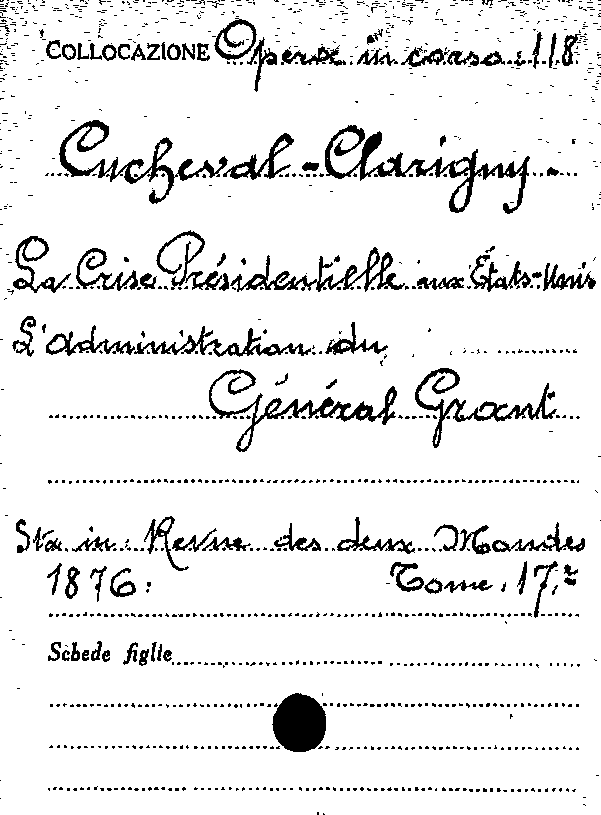 COLLOCAZIONE Opera in corso: 118
Cucheval-Clarigny.
La Crise Présidentielle aux États-Unis
L'administration du
Général Grant
Sta in: Revue des deux Mondes
1876: Tome: 17.
Schede figlie